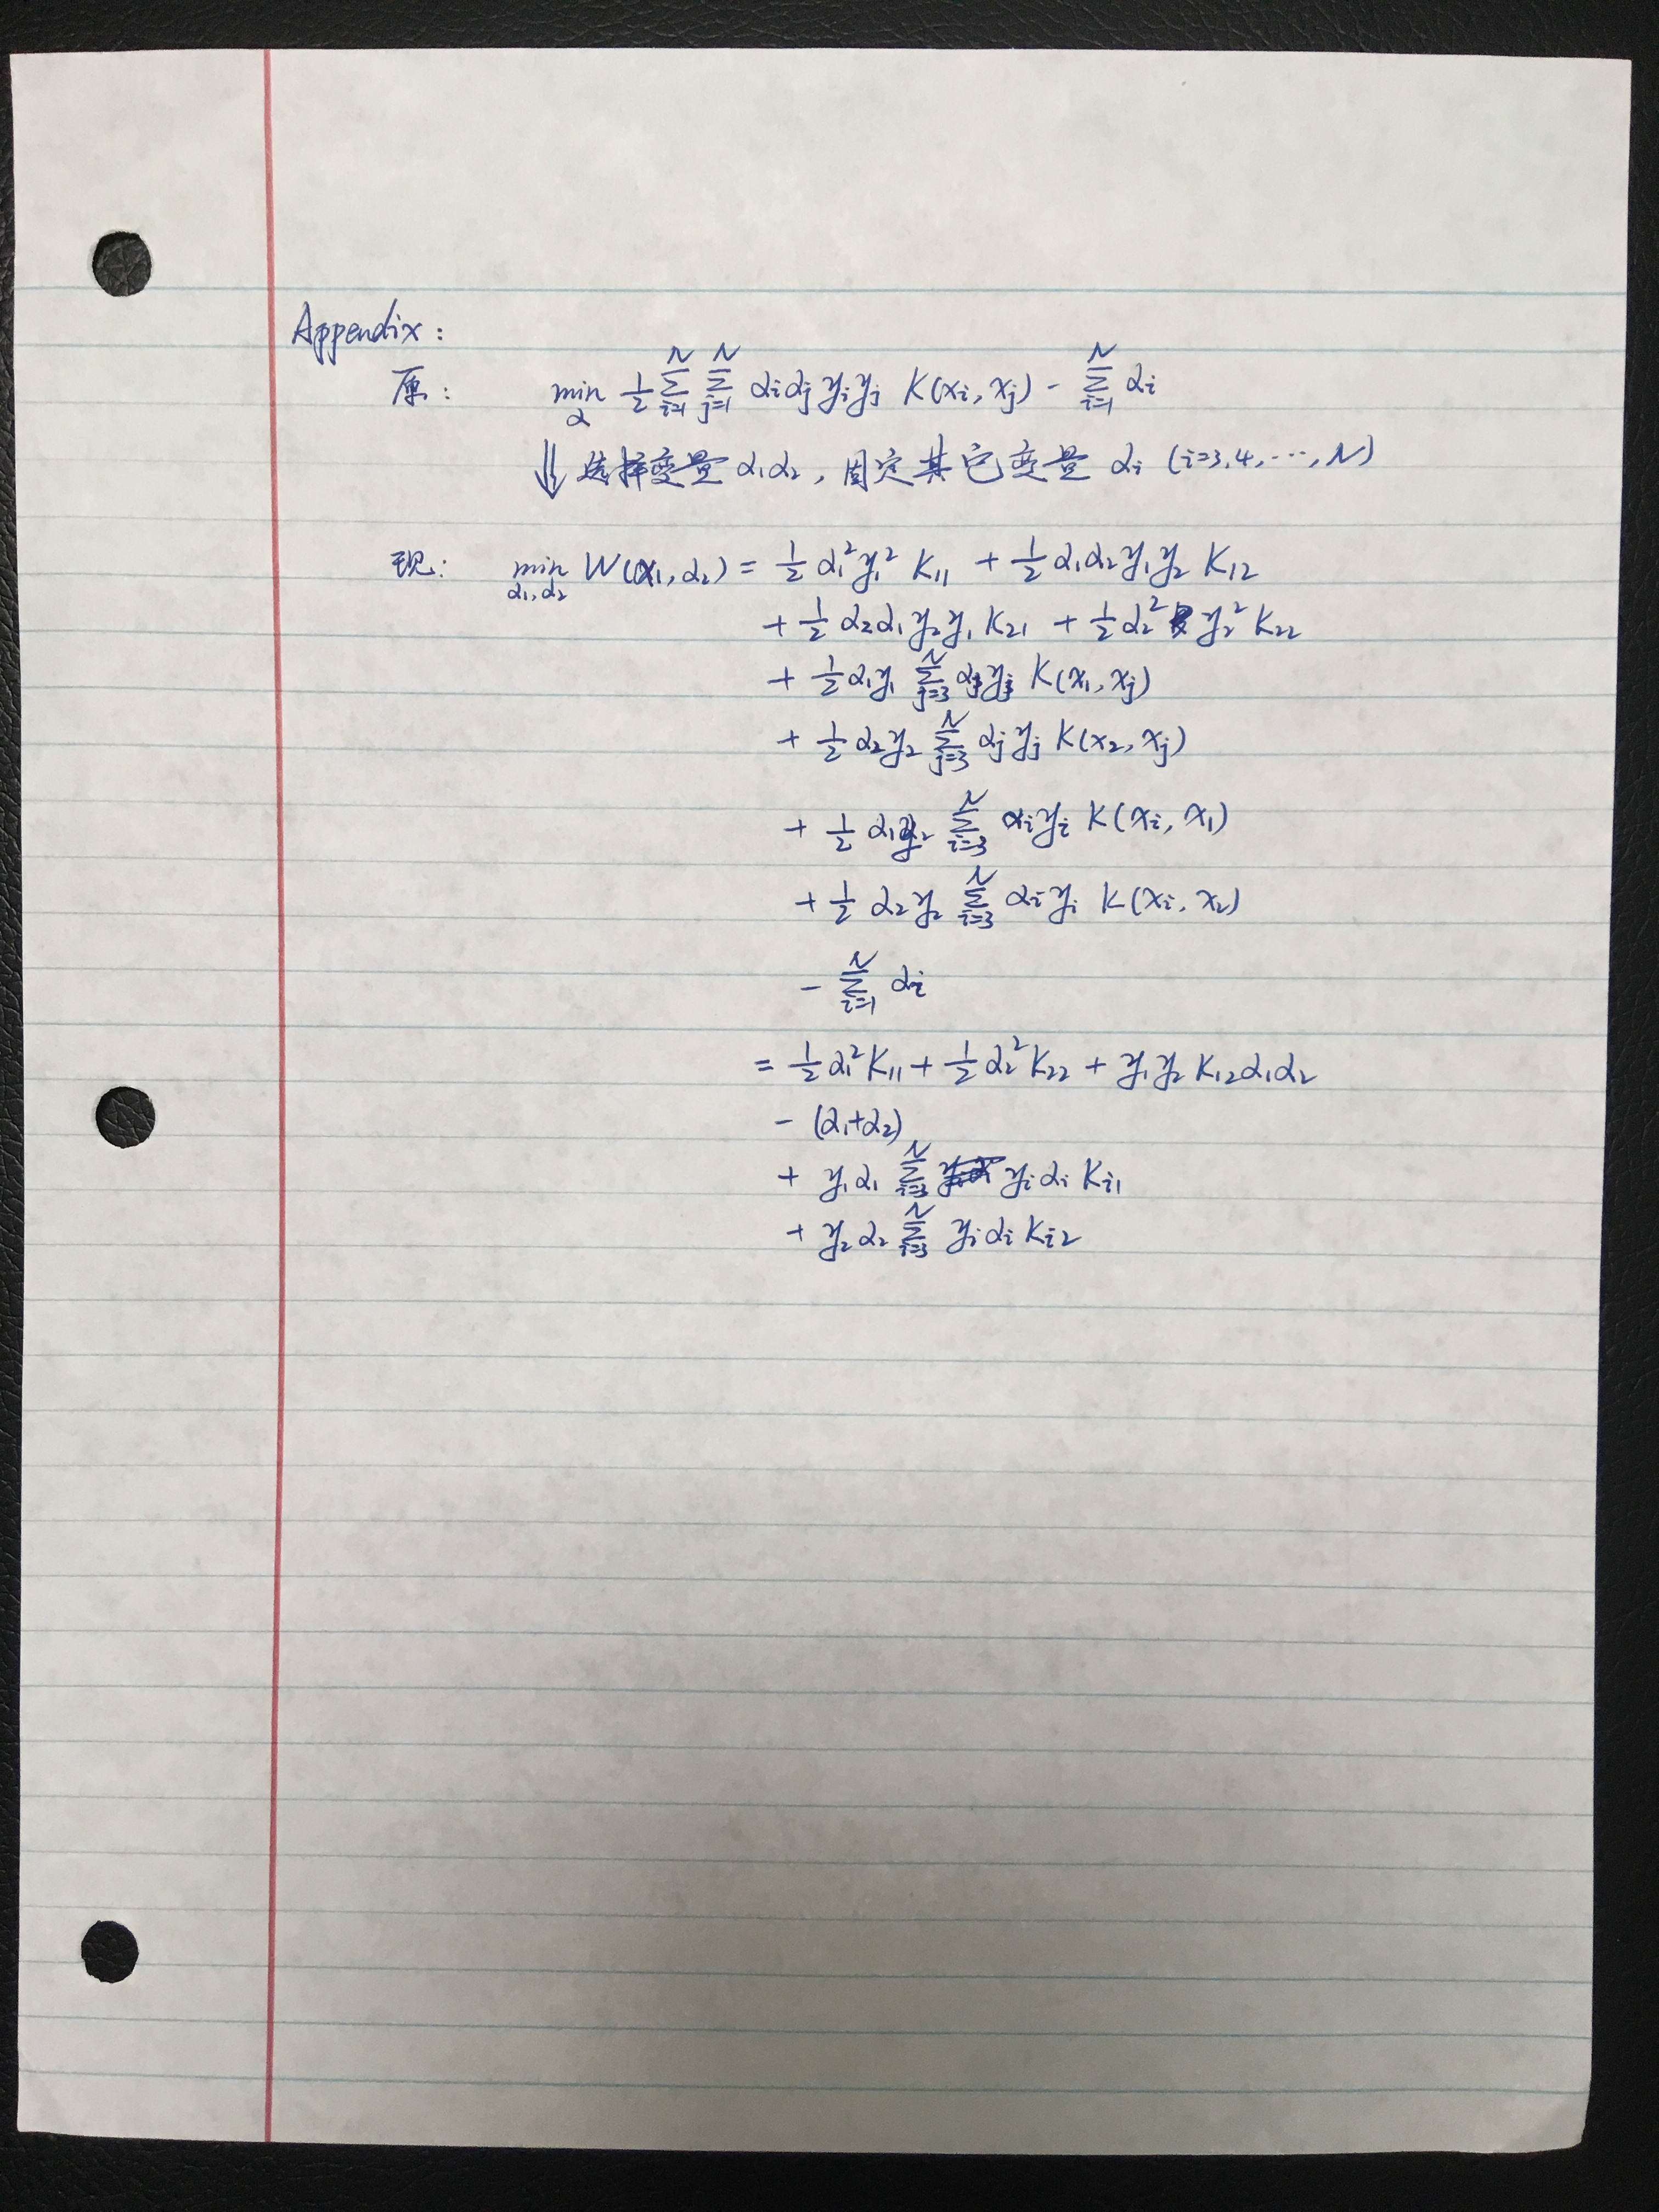 Appendix:
原: min_α ½ Σ_{i=1}^N Σ_{j=1}^N αiαj yiyj K(xi, xj) - Σ_{i=1}^N αi
⇓ 选择变量 α₁α₂, 固定其它变量 αi (i=3,4,⋯,N)
现: min_{α₁,α₂} W(α₁,α₂) = ½ α₁² y₁² K₁₁ + ½ α₁α₂y₁y₂ K₁₂
+ ½ α₂α₁y₂y₁ K₂₁ + ½ α₂² y₂² K₂₂
+ ½ α₁y₁ Σ_{j=3}^N αjyj K(x₁, xj)
+ ½ α₂y₂ Σ_{j=3}^N αjyj K(x₂, xj)
+ ½ α₁y₂ Σ_{i=3}^N αiyi K(xi, x₁)
+ ½ α₂y₂ Σ_{i=3}^N αiyi K(xi, x₂)
- Σ_{i=1}^N αi
= ½ α₁² K₁₁ + ½ α₂² K₂₂ + y₁y₂ K₁₂α₁α₂
- (α₁+α₂)
+ y₁α₁ Σ_{i=3}^N yiαi Ki₁
+ y₂α₂ Σ_{i=3}^N yiαi Ki₂